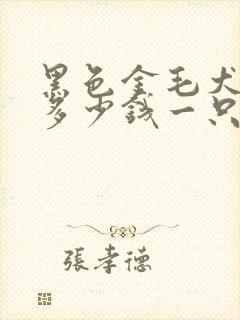 黑色金毛犬
多少钱一只
張孝德